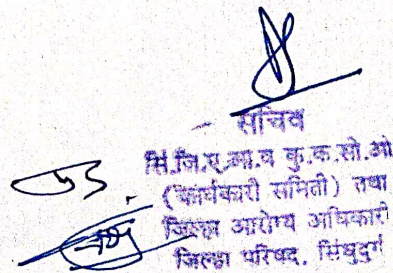 सचिव
सिं.जि.ए.आ.व कु.क.सो.ओ
(कार्यकारी समिती) तथा
जिल्हा आरोग्य अधिकारी
जिल्हा परिषद, सिंधुदुर्ग